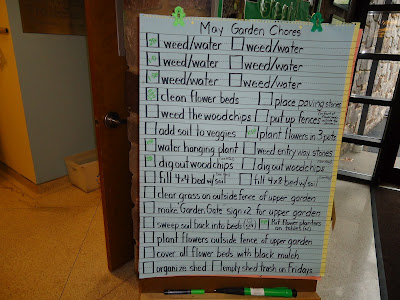 May Garden Chores
weed/water weed/water
weed/water weed/water
weed/water weed/water
clean flower beds place paving stones
weed the woodchips put up fences
add soil to veggies plant flowers in 3 pots
water hanging plant weed entry way stones
dig out woodchips dig out woodchips
fill 4x4 bed w/soil fill 4x8 bed w/soil
clear grass on outside fence of upper garden
make Garden Gate sign x2 for upper garden
sweep soil back into beds Put flower planters on tables
plant flowers outside fence of upper garden
cover all flower beds with black mulch
organize shed empty shed trash on Fridays